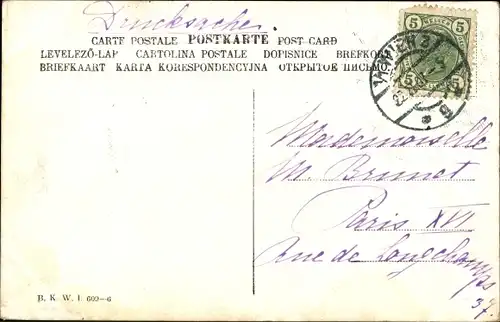 Drucksache
CARTE POSTALE POSTKARTE POST CARD
LEVELEZŐ-LAP CARTOLINA POSTALE DOPISNICE BREFKO
BRIEFKAART KARTA KORESPONDENCYJNA ОТКРЫТОЕ ПИСЬМО
5 5
5 5
WIEN
6
Mademoiselle
M. Brunet
Paris XVI
Rue de Longchamps
37.
B. K. W. I. 609-6